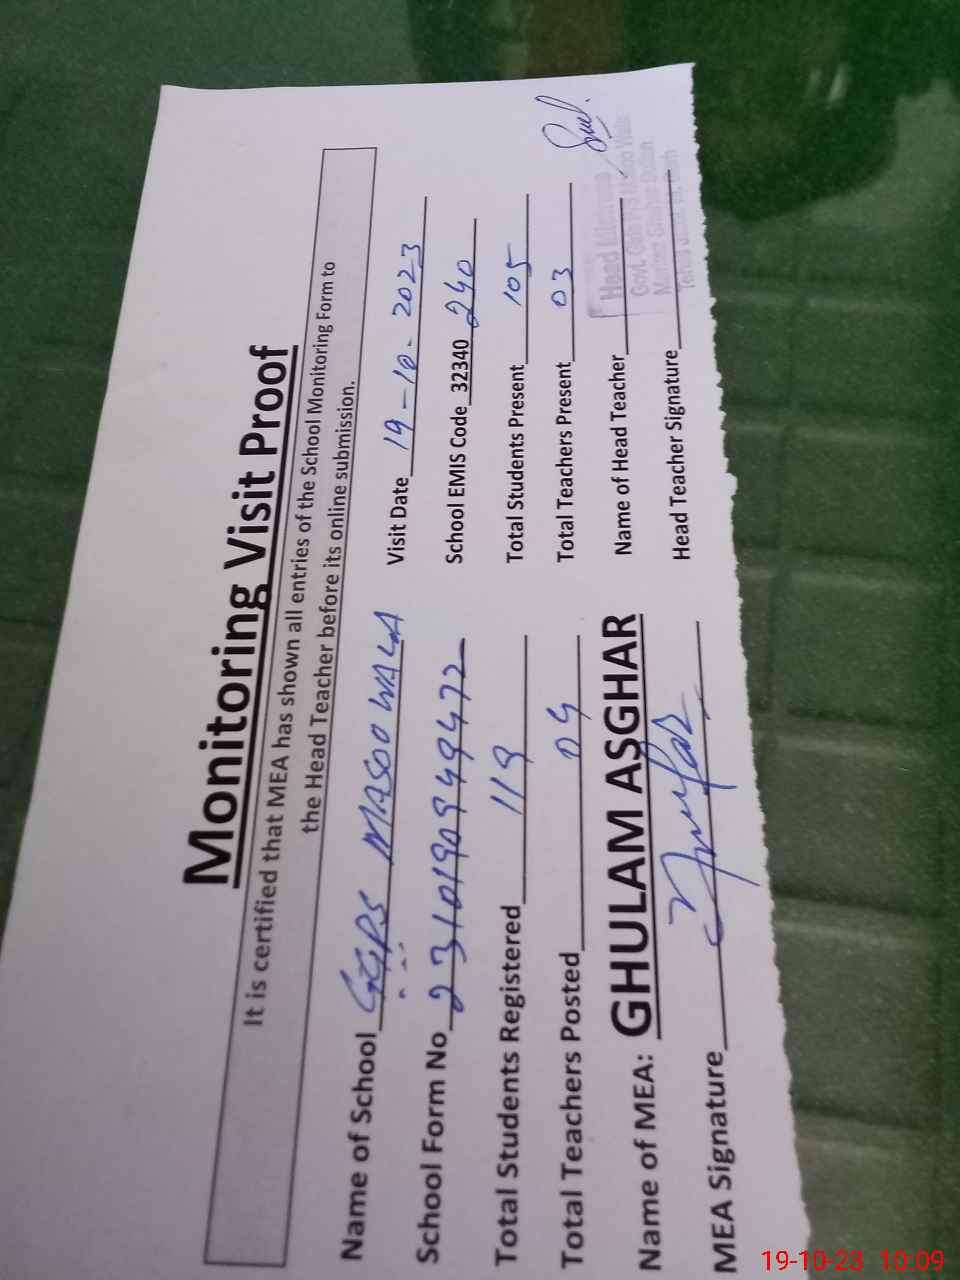 Monitoring Visit Proof
It is certified that MEA has shown all entries of the School Monitoring Form to
the Head Teacher before its online submission.
Name of School GGPS MASOO WALA Visit Date 19-10-2023
School Form No School EMIS Code 32340 240
Total Students Registered 119 Total Students Present 105
Total Teachers Posted 04 Total Teachers Present 03
Name of MEA: GHULAM ASGHAR Name of Head Teacher
MEA Signature Head Teacher Signature
Head Mistress
19-10-23 10:09